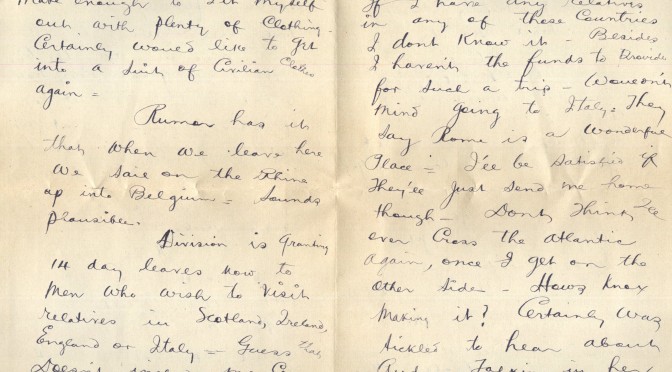 make enough to fit myself
out with plenty of Clothing -
Certainly would like to get
into a Suit of Civilian Clothes
again =
Rumor has it
that when we leave here
we sail on the Rhine
up into Belgium = Sounds
plausible.
Division is granting
14 day leaves now to
Men who wish to visit
relatives in Scotland, Ireland,
England or Italy = Guess that
Doesn't
If I have any relatives
in any of those Countries
I dont Know it - Besides
I haven't the funds to Provide
for Such a trip - Wouldn't
Mind going to Italy = They
Say Rome is a Wonderful
Place = I'll be Satisfied if
They'll Just Send me home
though - Dont Think I'll
ever Cross the Atlantic
Again, once I get on the
other Side - Hows Knox
Making it? Certainly Was
tickled to hear about